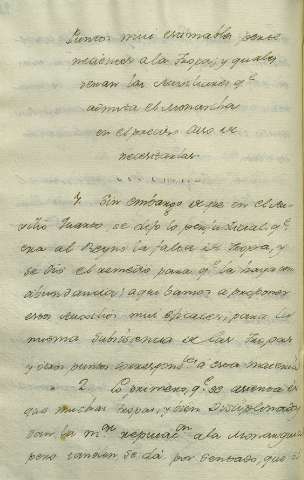 Puntos mui estimables, perte
necientes a la Tropa, y quales
seran los Auxiliares q.e
admita el Monarcha
en el preciso caso de
necesitarlas
1. Sin embargo de que en el Au
dito Quarto, se dijo lo perjudicial q.e
era al Reyno la falta de Tropa, y
se dió el remedio para q.e la haya con
abundancia; aqui bamos a proponer
otros mui eficaces, para la
misma subsistencia de las Tropas
y otros puntos a esta materia
2. Lo primero, q.e se asienta es
que muchas Tropas, y bien Disciplinadas
dan la m.or reputac.on a la Monarquia
pero tambien se dá por sentado, que